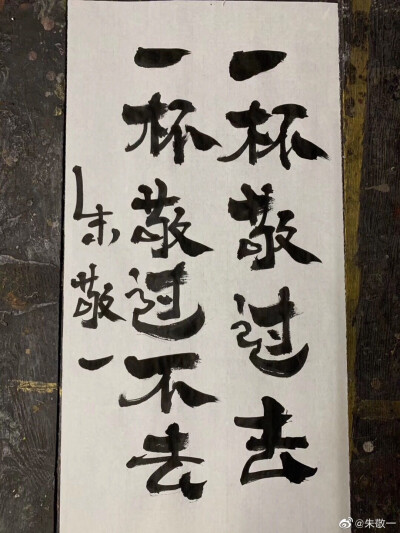 一杯敬过去
一杯敬过不去
朱敬一
@朱敬一